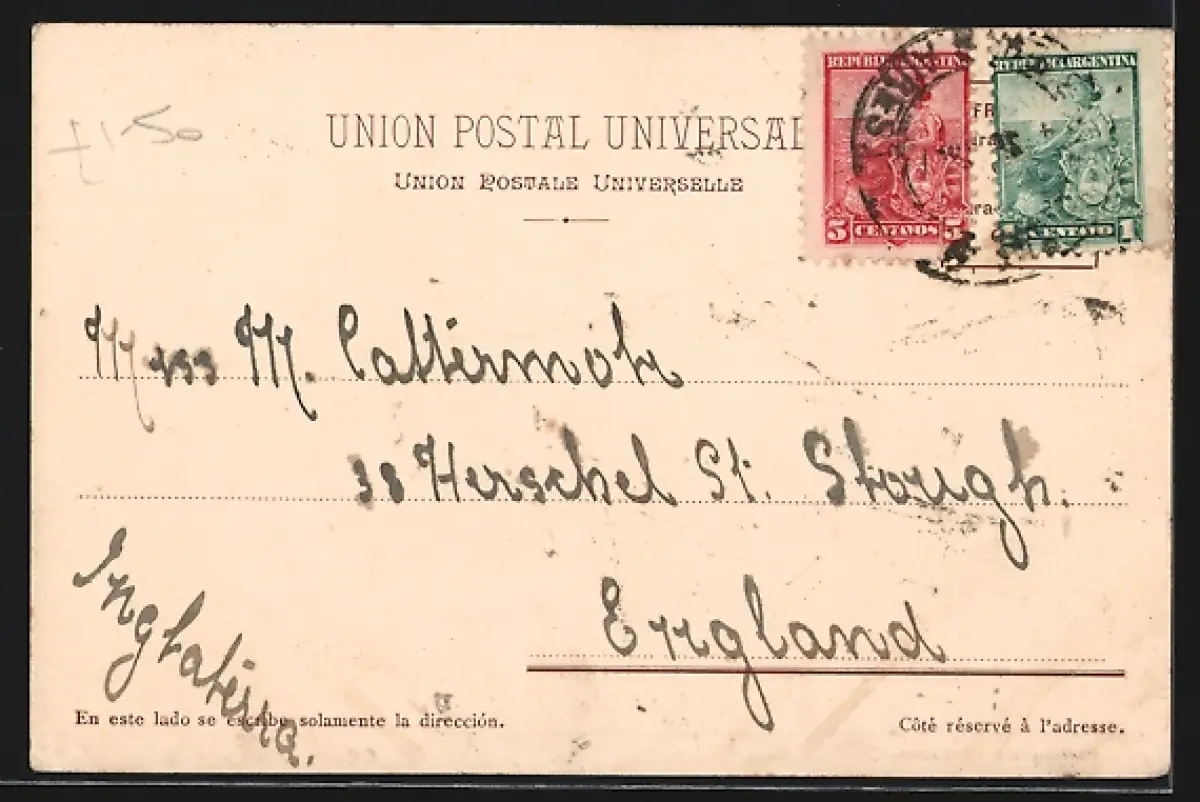 £1-50
UNION POSTAL UNIVERSAL
UNION POSTALE UNIVERSELLE
REPUBLICA ARGENTINA
5 CENTAVOS 5
REPUBLICA ARGENTINA
1 CENTAVO 1
AIRES
Miss M. Cattermole
38 Herschel St. Slough.
England
Inglaterra.
En este lado se escribe solamente la dirección.
Côté réservé à l'adresse.